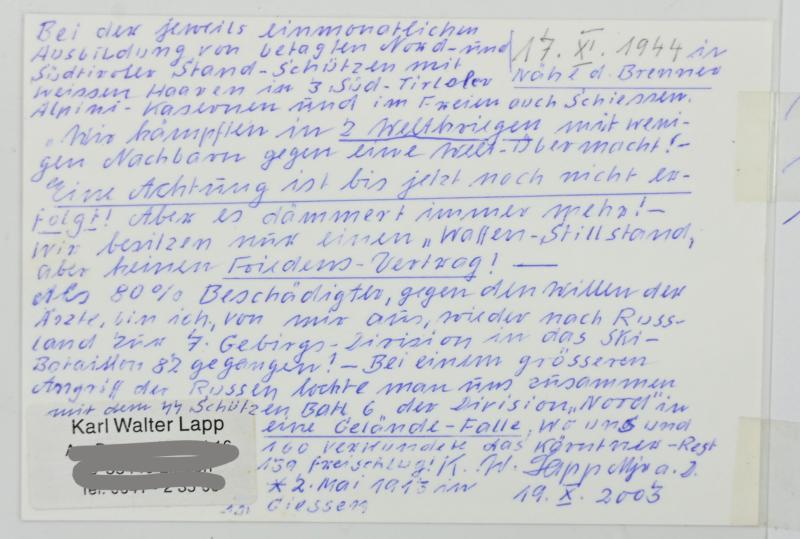 Bei der jeweils einmonatlichen
Ausbildung von betagten Nord- und
Südtiroler Stand-Schützen mit
weissen Haaren in 3 Süd-Tirloler
Alpini-Kasernen und im Freien auch Schiessen.
17. XI. 1944 in
Nähe d. Brenner
"Wir kämpften in 2 Weltkriegen mit weni-
gen Nachbarn gegen eine Welt-Übermacht!-
Eine Achtung ist bis jetzt noch nicht er-
folgt! Aber es dämmert immer mehr!-
Wir besitzen nur einen "Waffen-Stillstand,
aber keinen Friedens-Vertrag! —
Als 80% Beschädigter, gegen den Willen der
Ärzte, bin ich, von mir aus, wieder nach Russ-
land zur 7. Gebirgs-Division in das Ski-
Bataillon 82 gegangen! - Bei einem grösseren
Angriff der Russen lockte man uns zusammen
mit dem SS Schützen Batl 6 der Division "Nord" in
eine Gelände-Falle, wo uns und
160 Verwundete das Kärntner-Regt
139 freischlug! K. W. Lapp Mjr a. D.
* 2. Mai 1913 in
Giessen
19. X. 2003
Karl Walter Lapp